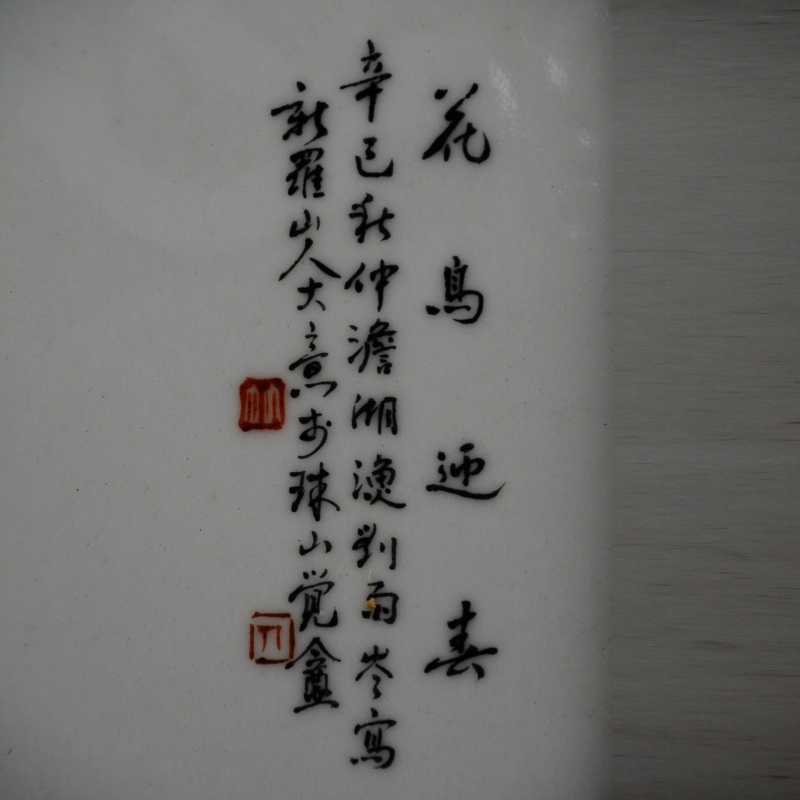 花鳥迎春
辛巳秋仲澹湖漁劉雨岑寫
新羅山人大意於珠山覺盦